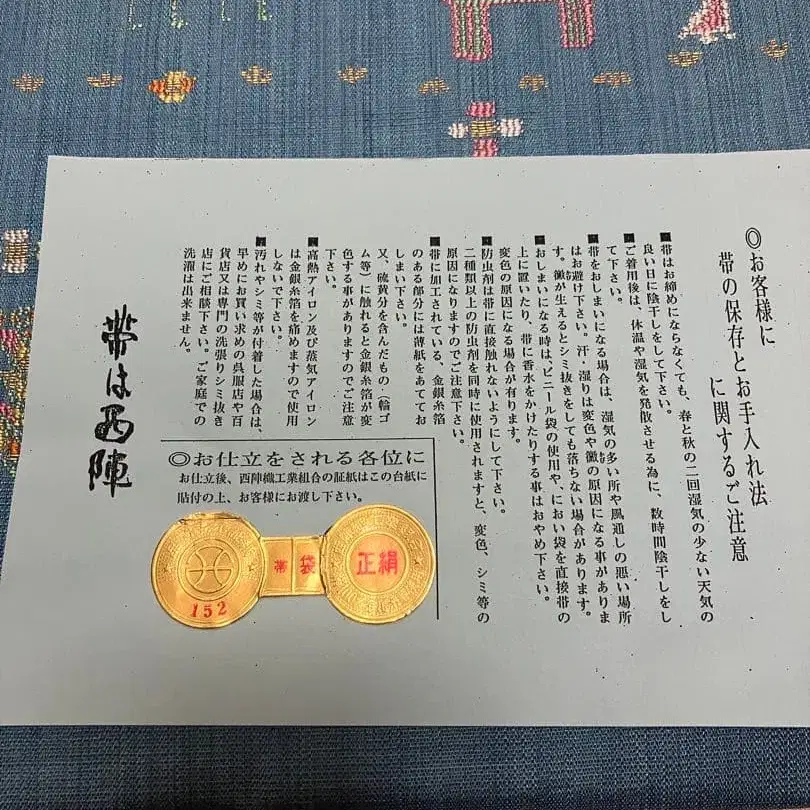 ◎お客様に
帯の保存とお手入れ法
に関するご注意
■帯はお締めにならなくても、春と秋の二回湿気の少ない天気の
良い日に陰干しをして下さい。
■ご着用後は、体温や湿気を発散させる為に、数時間陰干しをし
て下さい。
■帯をおしまいになる場合は、湿気の多い所や風通しの悪い場所
はお避け下さい。汗・湿りは変色や黴の原因になる事がありま
す。黴が生えるとシミ抜きをしても落ちない場合があります。
■おしまいになる時は、ビニール袋の使用や、におい袋を直接帯の
上に置いたり、帯に香水をかけたりする事はおやめ下さい。
変色の原因になる場合が有ります。
■防虫剤は帯に直接触れないようにして下さい。
二種類以上の防虫剤を同時に使用されますと、変色、シミ等の
原因になりますのでご注意下さい。
■帯に加工されている、金銀糸箔
のある部分には薄紙をあててお
しまい下さい。
又、硫黄分を含んだもの（輪ゴ
ム等）に触れると金銀糸箔が変
色する事がありますのでご注意
下さい。
■高熱アイロン及び蒸気アイロン
は金銀糸箔を痛めますので使用
しないで下さい。
■汚れやシミ等が付着した場合は、
早めにお買い求めの呉服店や百
貨店又は専門の洗張りシミ抜き
店にご相談下さい。ご家庭での
洗濯は出来ません。
◎お仕立をされる各位に
お仕立後、西陣織工業組合の証紙はこの台紙に
貼付の上、お客様にお渡し下さい。
152
帯 袋
正絹
帯は西陣